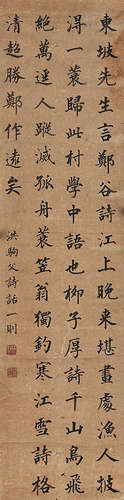 東坡先生言鄭谷詩江上晚來堪畫處漁人披
得一蓑歸此村學中語也柳子厚詩千山鳥飛
絕萬逕人蹤滅孤舟蓑笠翁獨釣寒江雪詩格
清超勝鄭作遠矣
洪駒父詩話一則